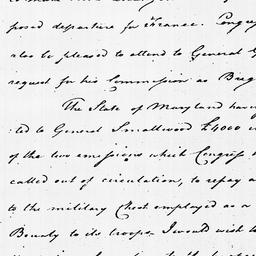 posed departure for France. Cong
also be pleased to attend to General
request for his Commission as Brig
The State of Maryland hav
ted to General Smallwood £4000
of the two emissions which Congress
called out of circulation, to repay a
to the military Chest employed as a
Bounty to its troops. I would wish to